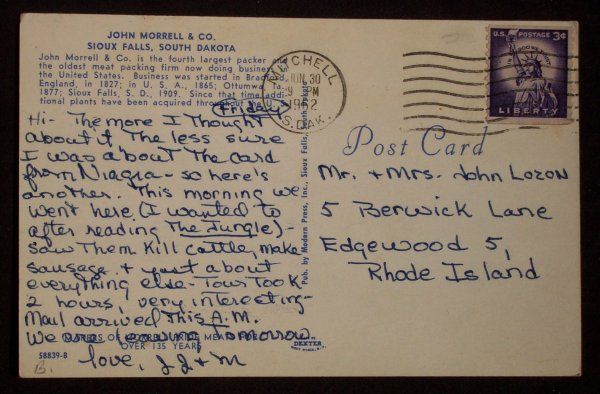 JOHN MORRELL & CO.
SIOUX FALLS, SOUTH DAKOTA
John Morrell & Co. is the fourth largest packer and
the oldest meat packing firm now doing business in
the United States. Business was started in Bradford,
England, in 1827; in U. S. A., 1865; Ottumwa, Ia.
1877; Sioux Falls, S. D., 1909. Since that time addi-
tional plants have been acquired throughout the U.S.
Friday
Hi - The more I Thought
about it The less sure
I was about The card
from Niagra - so here's
another. This morning we
went here (I wanted to
after reading The Jungle) -
saw Them kill cattle, make
sausage & just about
everything else - Tour Took
2 hours, very interesting -
Mail arrived This A.M.
We are leaving Tomorrow.
OVER 135 YEARS
love, JJ & M
58839-B
13.
Pub. by Modern Press, Inc., Sioux Falls, South Dakota
DEXTER
MITCHELL
JUN 30
9 PM
1962
S. DAK.
U.S. POSTAGE 3¢
IN GOD WE TRUST
LIBERTY
Post Card
Mr. & Mrs. John Lozon
5 Berwick Lane
Edgewood 5,
Rhode Island